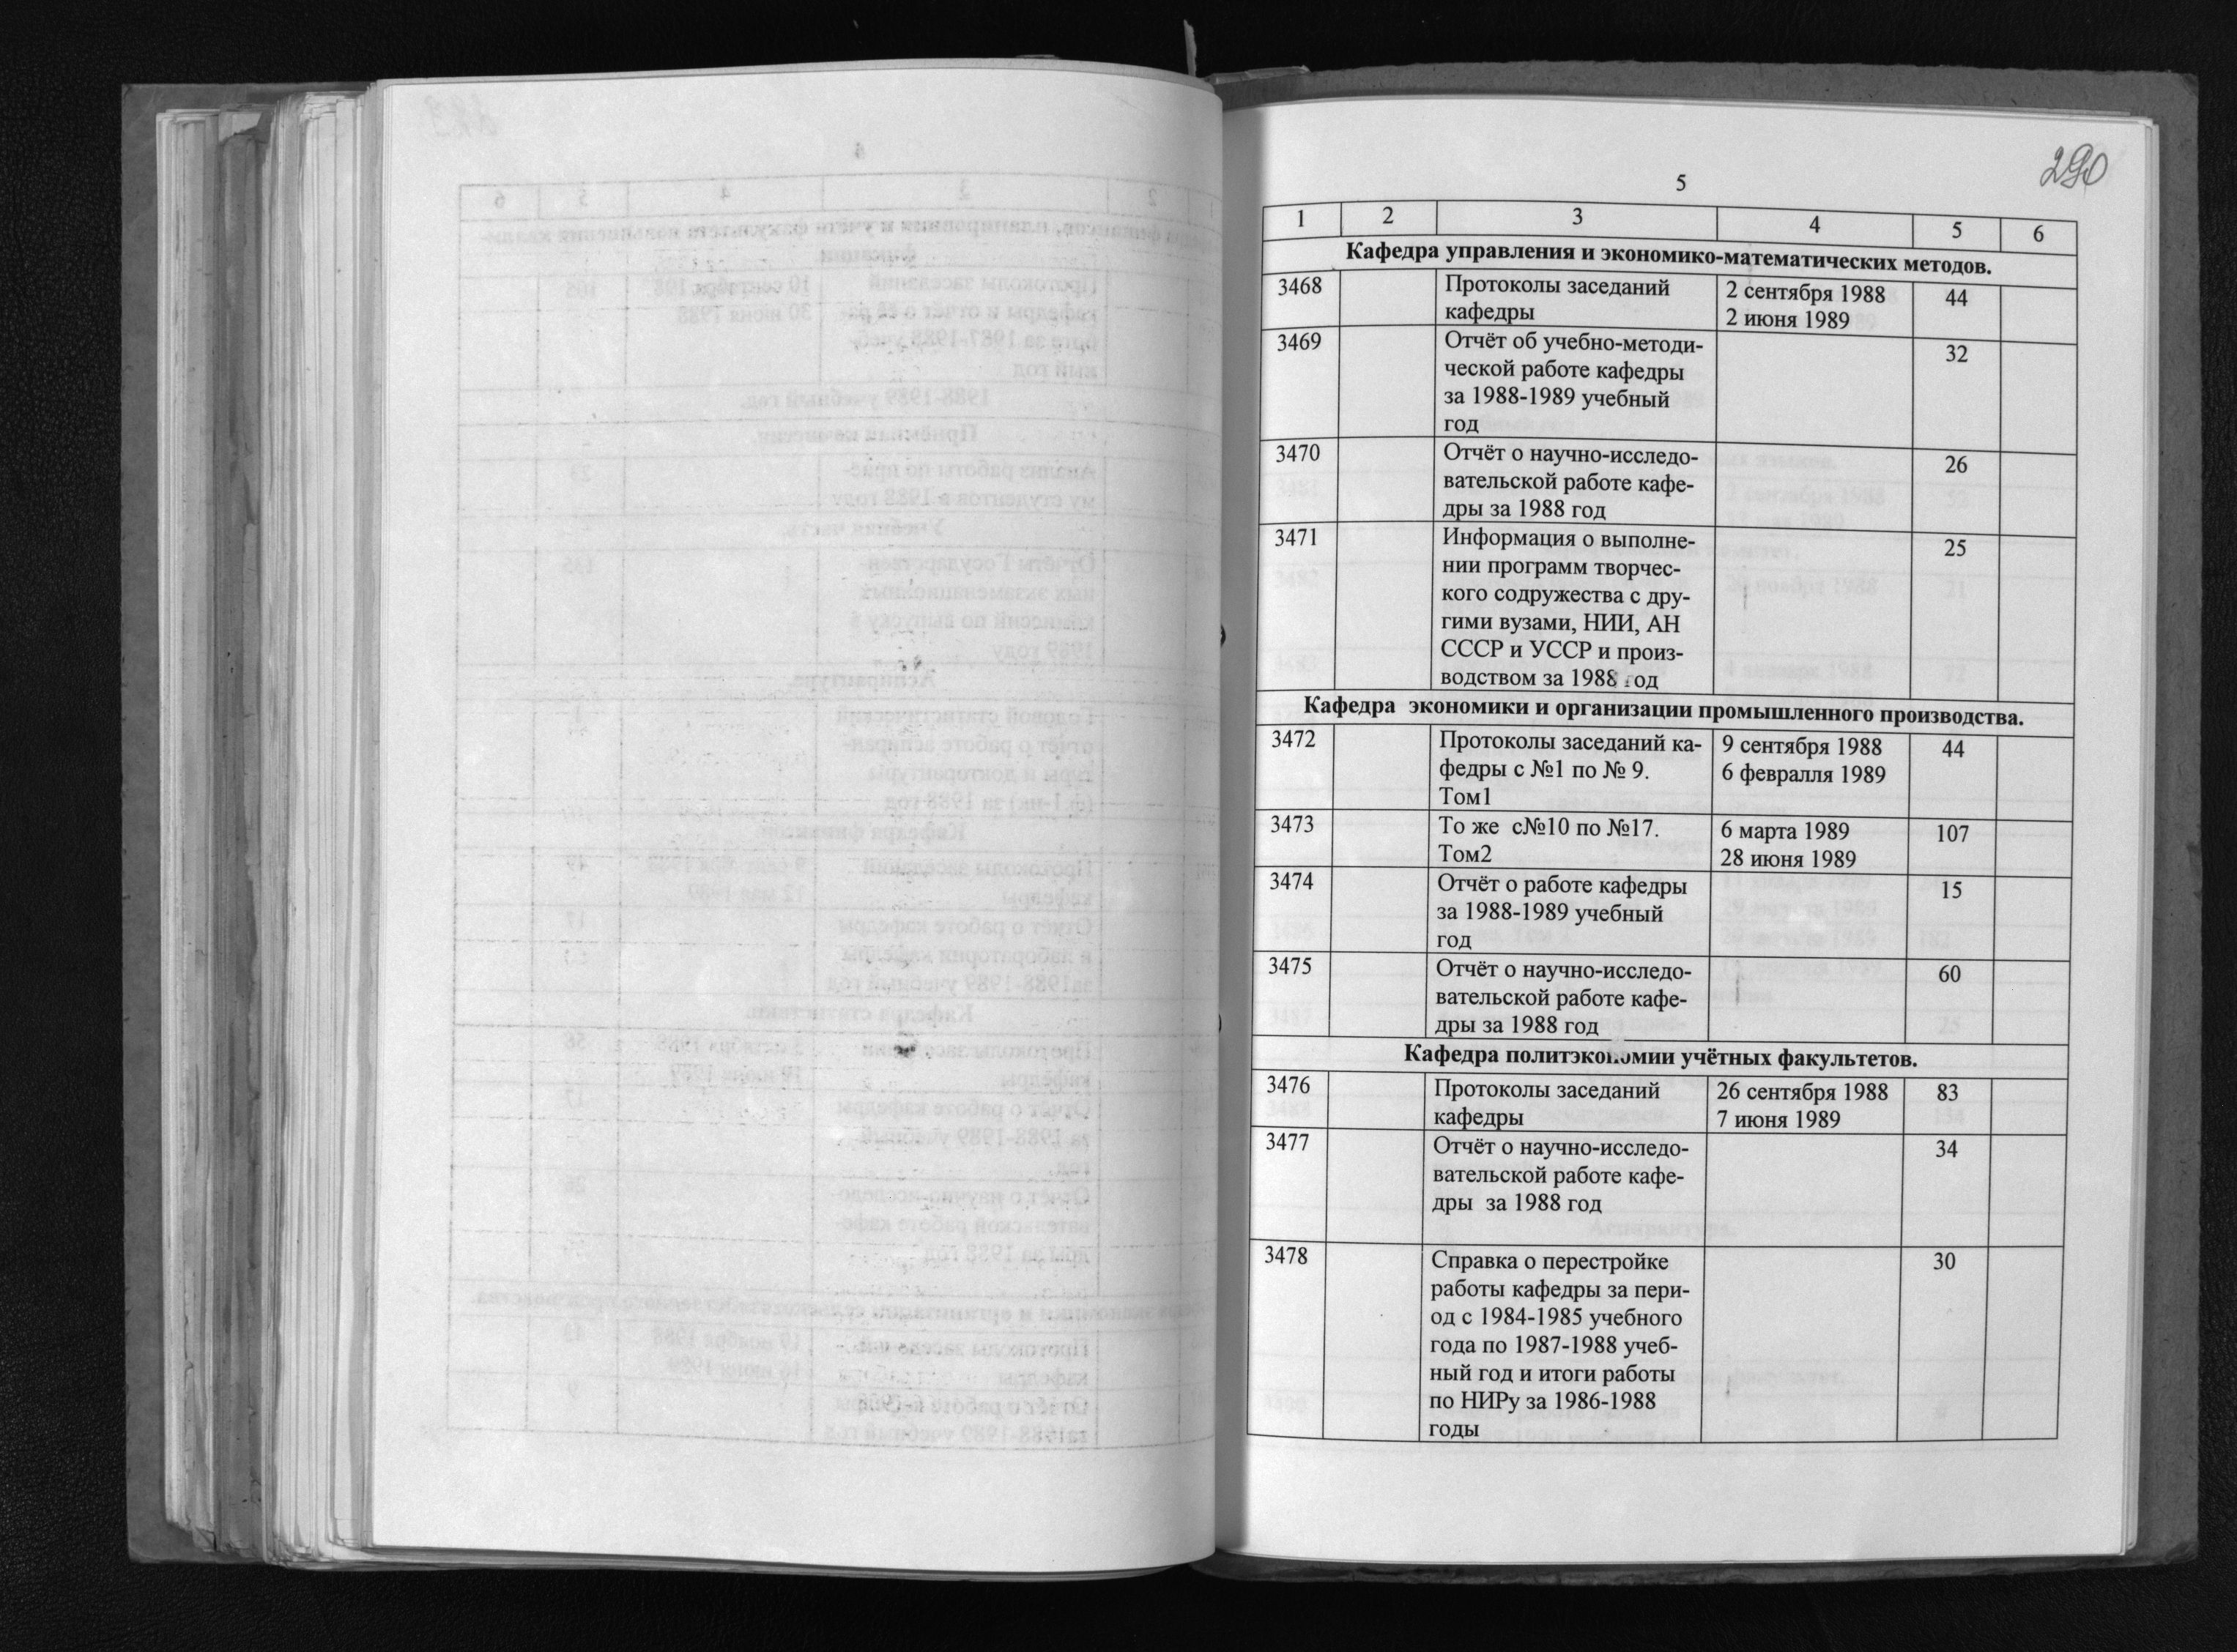 290
5
1 2 3 4 5 6
Кафедра управления и экономико-математических методов.
3468 Протоколы заседаний 2 сентября 1988 44
кафедры 2 июня 1989
3469 Отчёт об учебно-методи- 32
ческой работе кафедры
за 1988-1989 учебный
год
3470 Отчёт о научно-исследо- 26
вательской работе кафе-
дры за 1988 год
3471 Информация о выполне- 25
нии программ творчес-
кого содружества с дру-
гими вузами, НИИ, АН
СССР и УССР и произ-
водством за 1988 год
Кафедра экономики и организации промышленного производства.
3472 Протоколы заседаний ка- 9 сентября 1988 44
федры с №1 по № 9. 6 февралля 1989
Том1
3473 То же с№10 по №17. 6 марта 1989 107
Том2 28 июня 1989
3474 Отчёт о работе кафедры 15
за 1988-1989 учебный
год
3475 Отчёт о научно-исследо- 60
вательской работе кафе-
дры за 1988 год
Кафедра политэкономии учётных факультетов.
3476 Протоколы заседаний 26 сентября 1988 83
кафедры 7 июня 1989
3477 Отчёт о научно-исследо- 34
вательской работе кафе-
дры за 1988 год
3478 Справка о перестройке 30
работы кафедры за пери-
од с 1984-1985 учебного
года по 1987-1988 учеб-
ный год и итоги работы
по НИРу за 1986-1988
годы